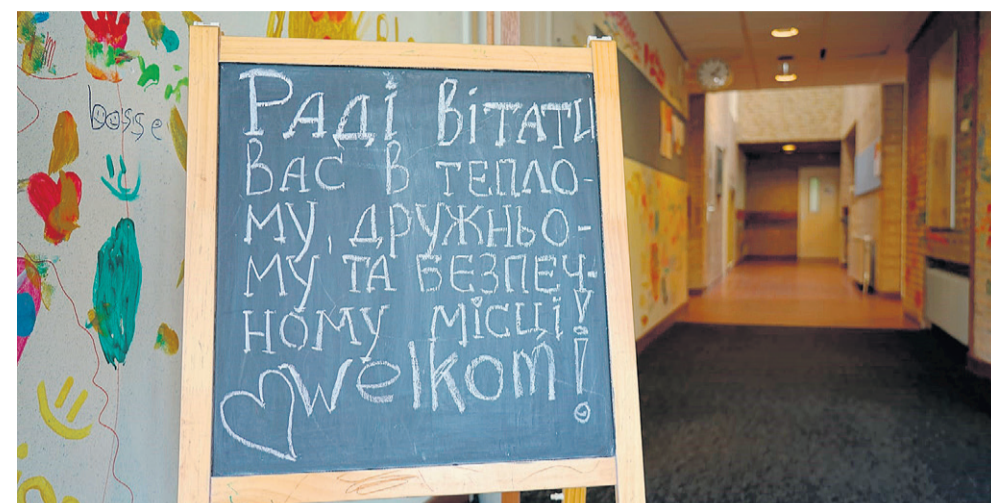 bosse
Раді вітати
вас в тепло-
му, дружньо-
му та безпеч-
ному місці!
welkom!